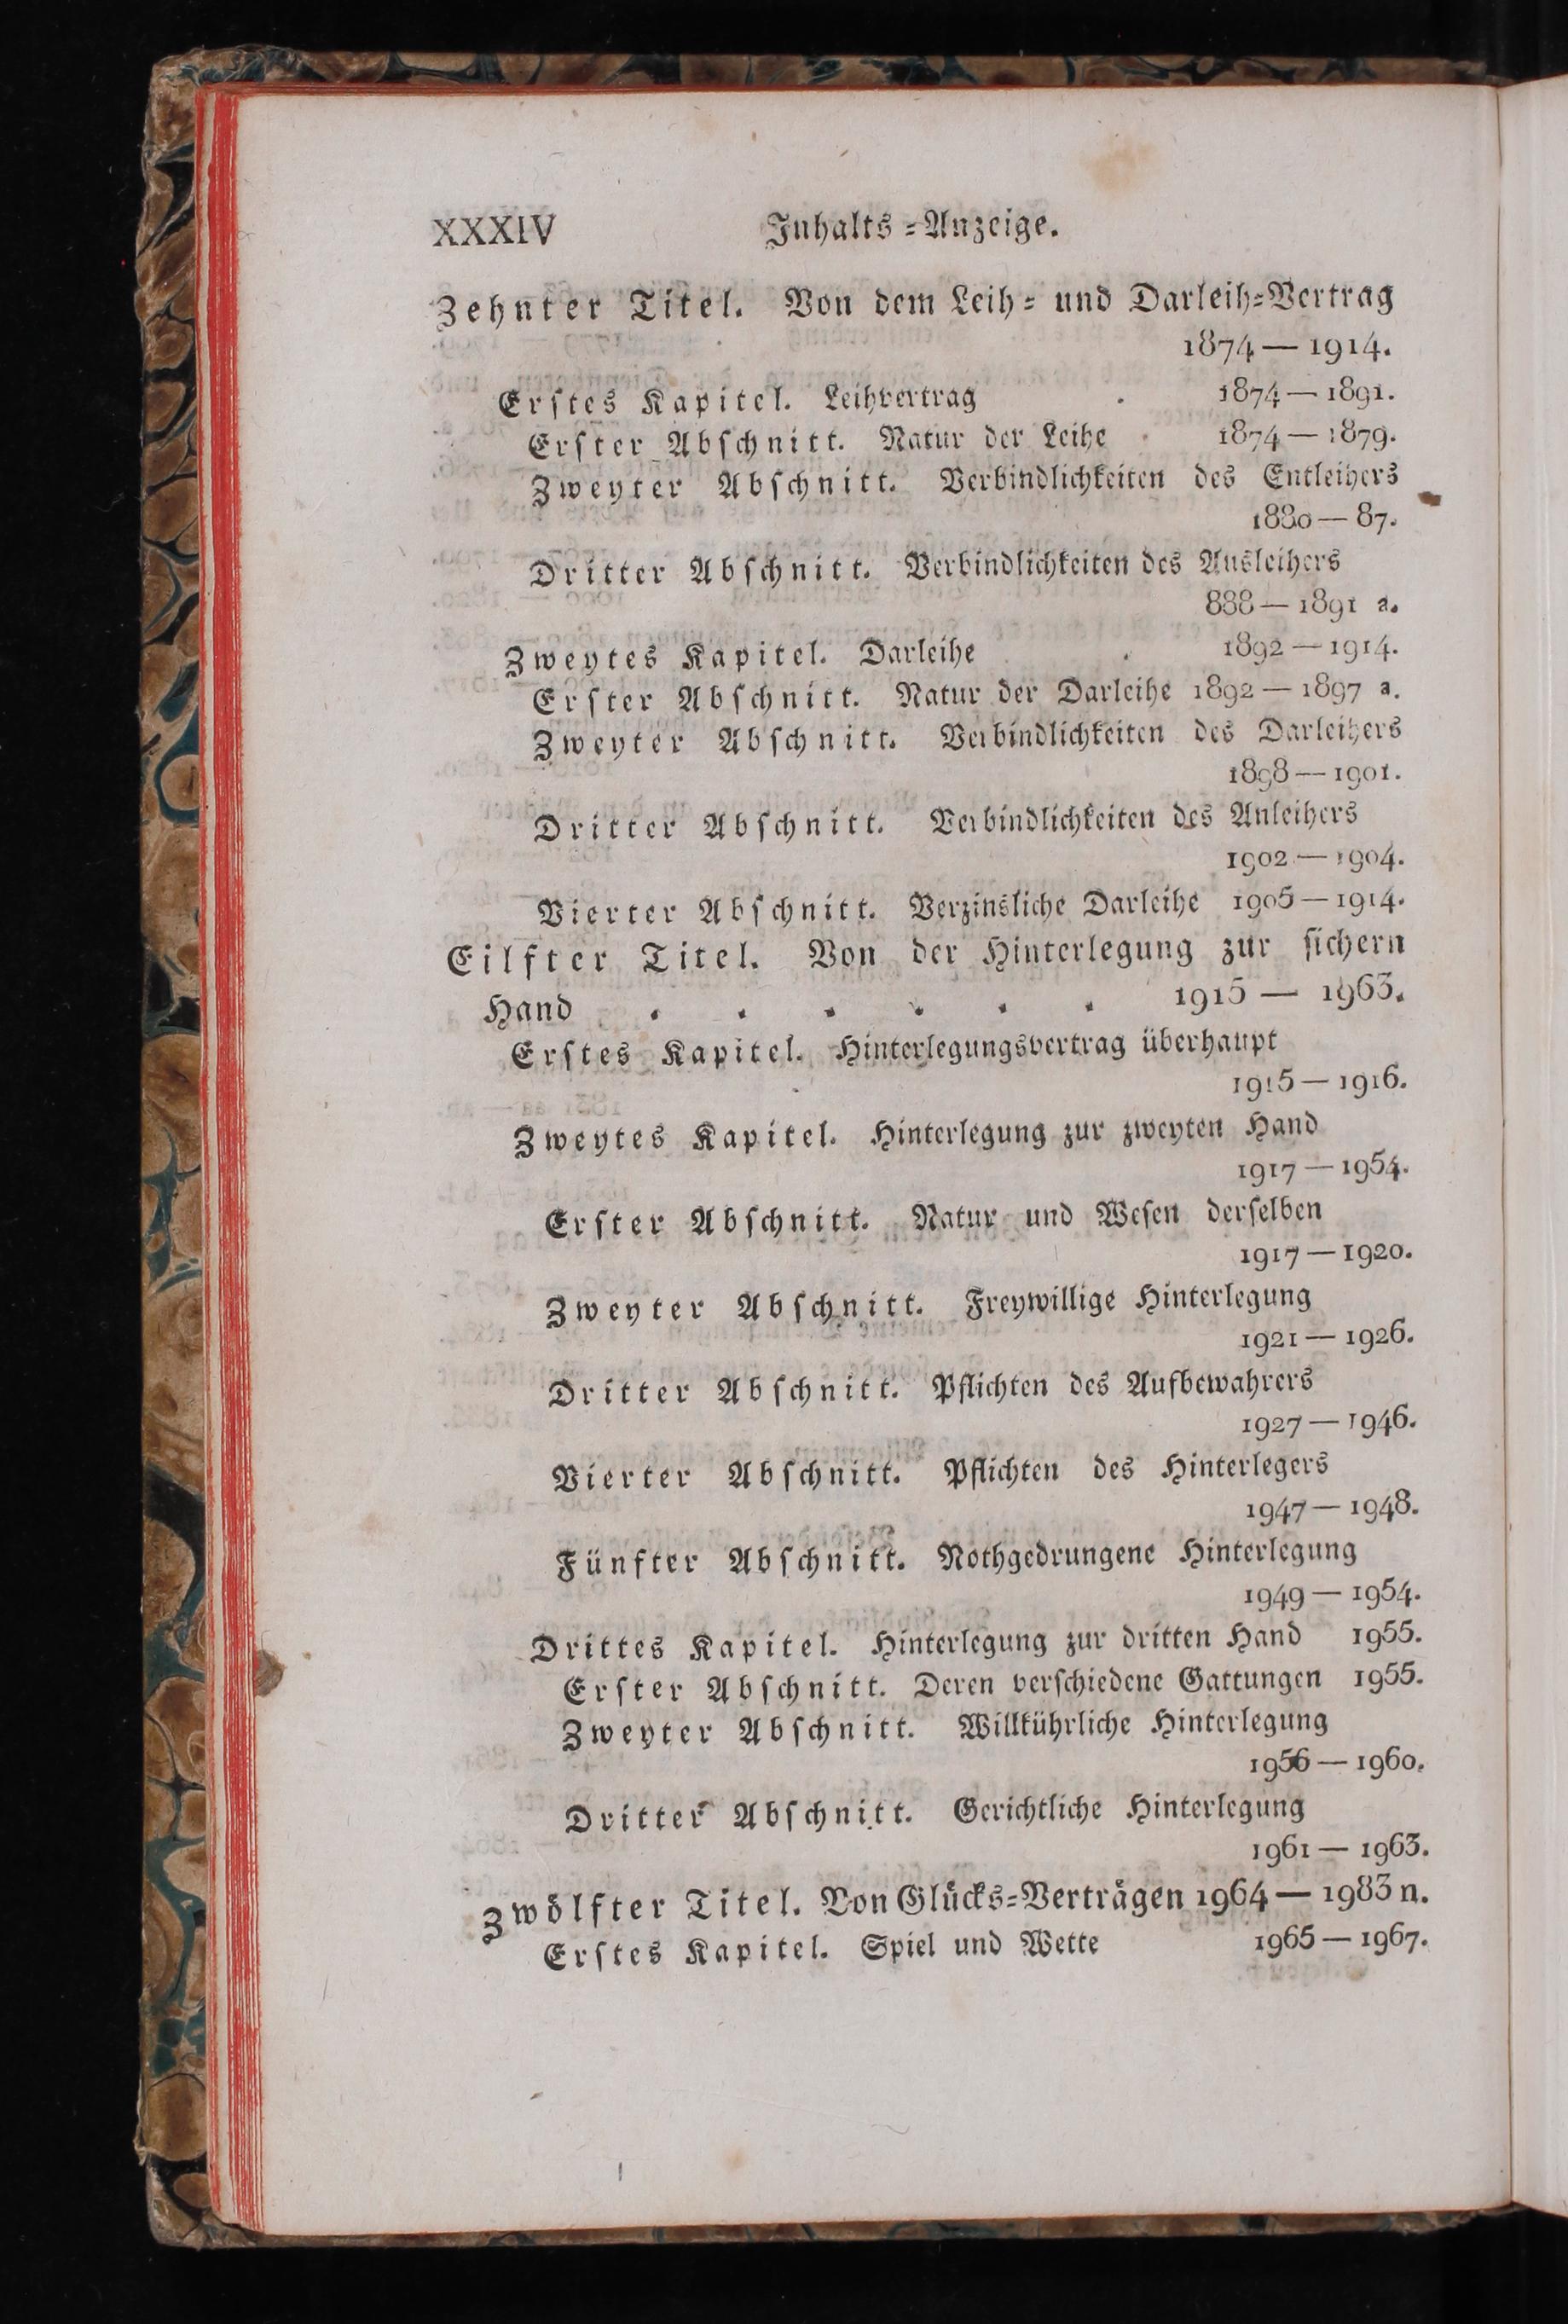 XXXIV Inhalts-Anzeige.
Zehnter Titel. Von dem Leih- und Darleih-Vertrag
1874 — 1914.
Erstes Kapitel. Leihvertrag . 1874 — 1891.
Erster Abschnitt. Natur der Leihe 1874 — 1879.
Zweyter Abschnitt. Verbindlichkeiten des Entleihers
1880 — 87.
Dritter Abschnitt. Verbindlichkeiten des Ausleihers
888 — 1891 a.
Zweytes Kapitel. Darleihe . 1892 — 1914.
Erster Abschnitt. Natur der Darleihe 1892 — 1897 a.
Zweyter Abschnitt. Verbindlichkeiten des Darleihers
1898 — 1901.
Dritter Abschnitt. Verbindlichkeiten des Anleihers
1902 — 1904.
Vierter Abschnitt. Verzinsliche Darleihe 1905 — 1914.
Eilfter Titel. Von der Hinterlegung zur sichern
Hand . . . . . . 1915 — 1963.
Erstes Kapitel. Hinterlegungsvertrag überhaupt
1915 — 1916.
Zweytes Kapitel. Hinterlegung zur zweyten Hand
1917 — 1954.
Erster Abschnitt. Natur und Wesen derselben
1917 — 1920.
Zweyter Abschnitt. Freywillige Hinterlegung
1921 — 1926.
Dritter Abschnitt. Pflichten des Aufbewahrers
1927 — 1946.
Vierter Abschnitt. Pflichten des Hinterlegers
1947 — 1948.
Fünfter Abschnitt. Nothgedrungene Hinterlegung
1949 — 1954.
Drittes Kapitel. Hinterlegung zur dritten Hand 1955.
Erster Abschnitt. Deren verschiedene Gattungen 1955.
Zweyter Abschnitt. Willkührliche Hinterlegung
1956 — 1960.
Dritter Abschnitt. Gerichtliche Hinterlegung
1961 — 1963.
Zwölfter Titel. Von Glücks-Verträgen 1964 — 1983 n.
Erstes Kapitel. Spiel und Wette 1965 — 1967.